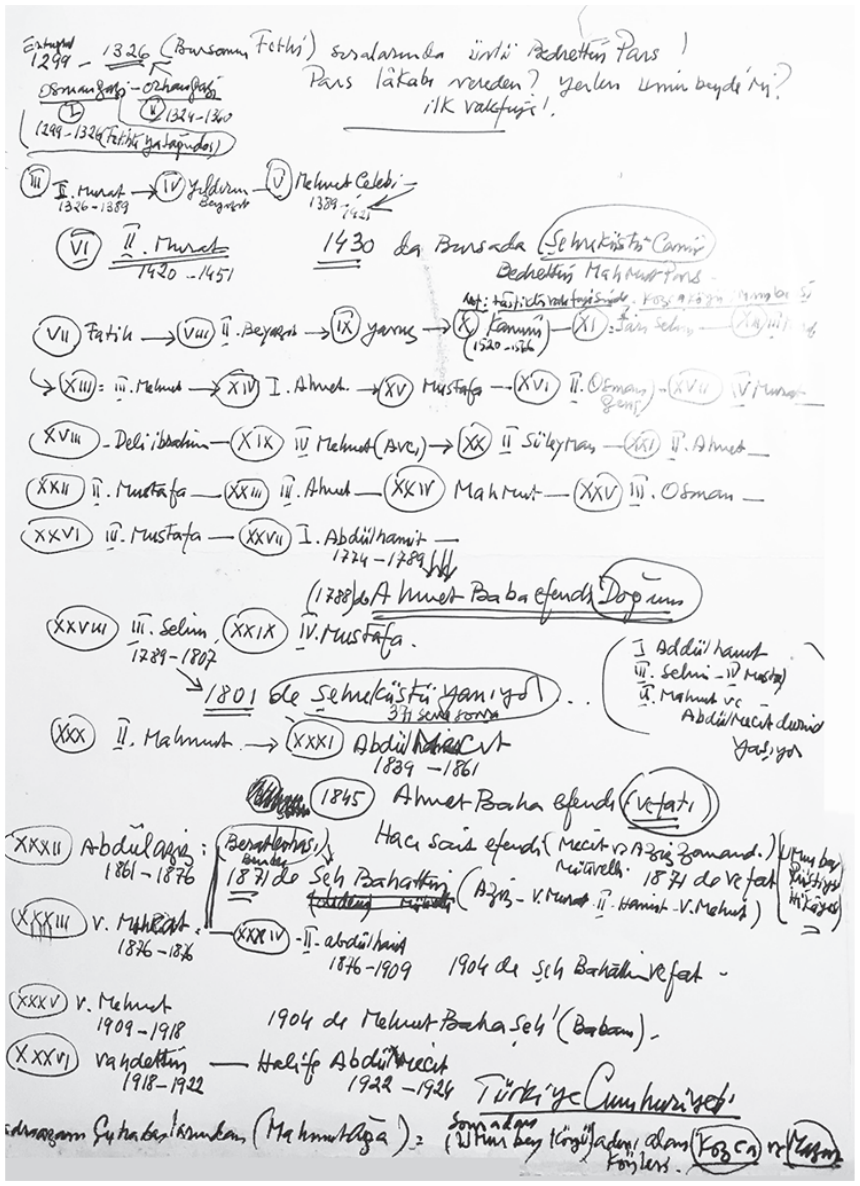 Ertuğrul
1299 - 1326 (Bursanın Fethi) sıralarında ünlü Bedrettin Pars !
Osmangazi - Orhangazi Pars lâkabı nereden? yerleri umur beyde mi?
I II 1324-1360 ilk vakfiye!.
1299-1326 (Fetihte yatağında)
III I. Murat → IV Yıldırım Beyazıt — V Mehmet Çelebi -
1326-1389 1389-1421
VI II. Murat 1430 da Bursada Şehreküstü Camii
1420-1451 Bedrettin Mahmut Pars -
VII Fatih → VIII II. Beyazıt → IX Yavuz → X Kanuni — XI = Sarı Selim — XII III
(1520-1566)
↳ XIII = III. Mehmet → XIV I. Ahmet → XV Mustafa — XVI II. Osman (Genç) - XVII IV Murat
XVIII - Deli ibrahim — XIX IV Mehmet (Avcı) → XX II Süleyman — XXI II. Ahmet —
XXII II. Mustafa — XXIII III. Ahmet — XXIV Mahmut — XXV III. Osman —
XXVI III. Mustafa — XXVII I. Abdülhamit —
1774-1789
(1788) de Ahmet Baba efendi Doğum
XXVIII III. Selim, XXIX IV. Mustafa.
1789-1807
I Abdülhamit
III. Selim - IV Mustafa
II. Mahmut ve
Abdülmecit devrinde
yaşıyor
→ 1801 de Şehreküstü yanıyor ...
371 sene sonra
XXX II. Mahmut → XXXI Abdülmecit
1839-1861
1845 Ahmet Baha efendi (vefatı)
XXXII Abdülaziz : Hacı Sait efendi (Mecit ve Aziz zamanı.)
1861-1876 1871 de Şeh Bahattin Mütevelli 1871 de vefat
(Aziz - V. Murat II- Hamit - V. Mehmet)
XXXIII V. Murat = — XXXIV - II- abdülhamit
1876-1876 1876-1909 1904 de Şeh Bahattin vefat -
XXXV V. Mehmet
1909-1918 1904 de Mehmet Baha Şeh' (Babam).
XXXVI Vahdettin — Halife Abdülmecit
1918-1922 1922-1924 Türkiye Cumhuriyeti
(Mahmutağa) = Sonradan (Umur bey köyü) adını alan Kozca ve
Köyleri.